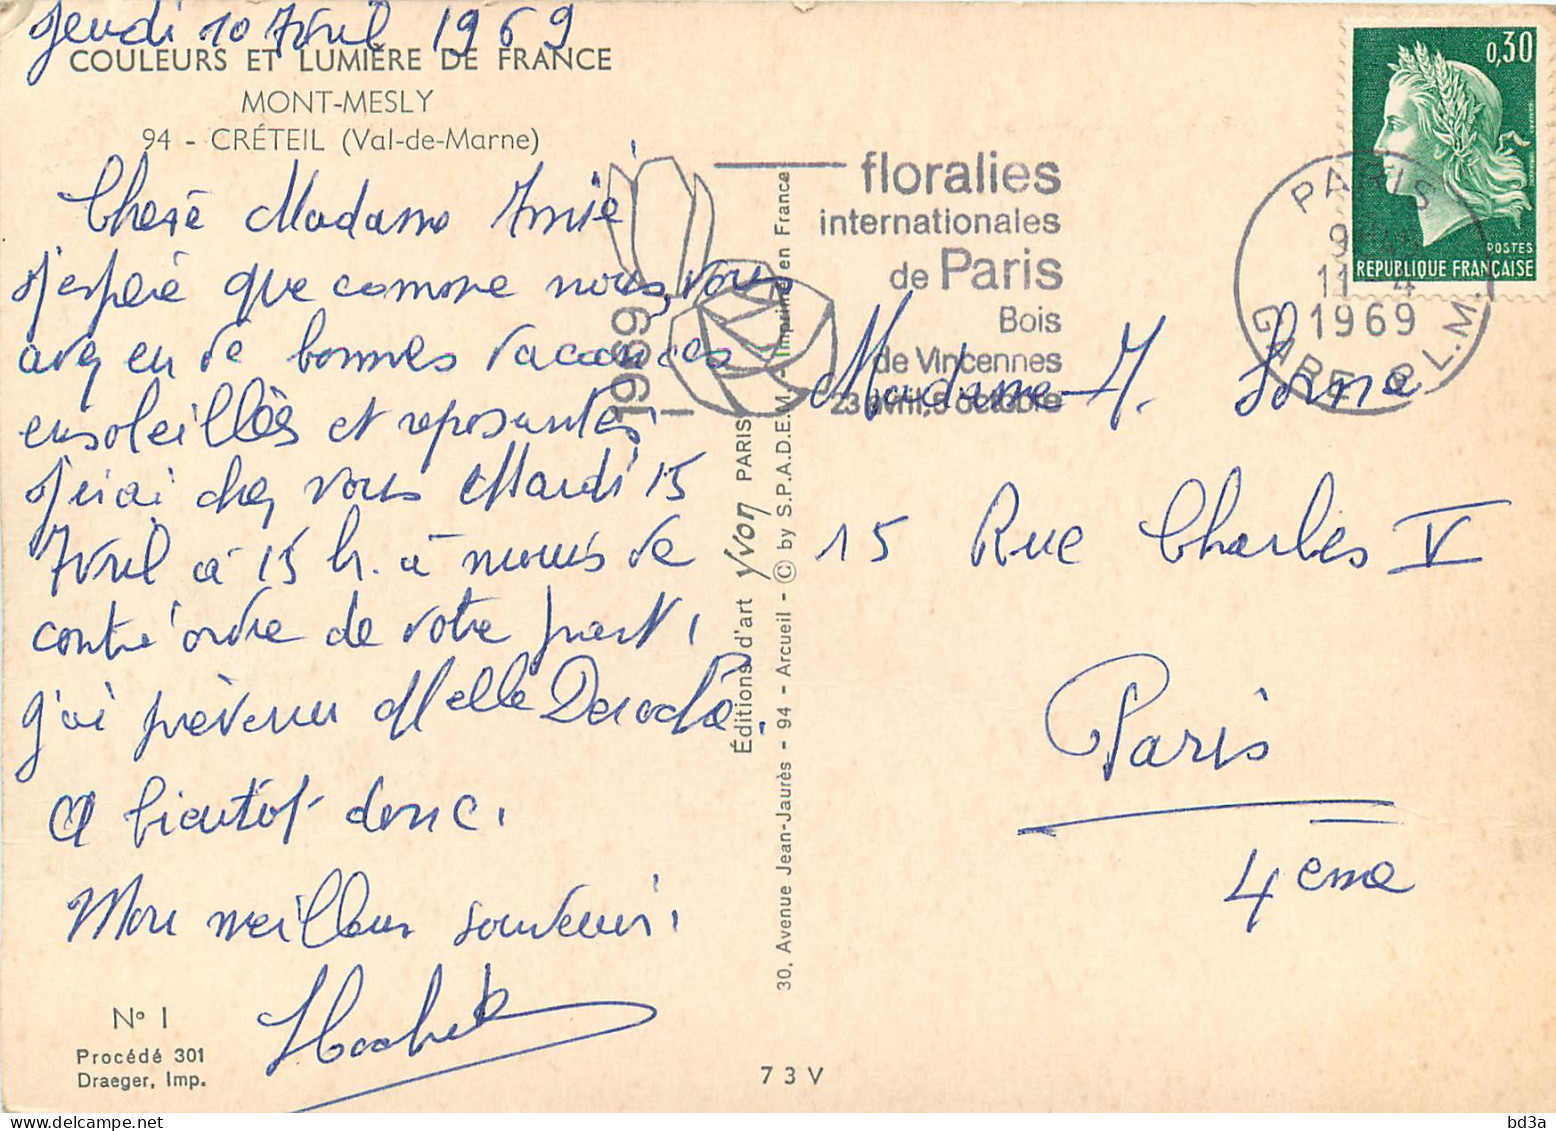 Jeudi 10 Avril 1969
COULEURS ET LUMIÈRE DE FRANCE
MONT-MESLY
94 - CRÉTEIL (Val-de-Marne)
Chère Madame Amie
J'espère que comme nous, vous
avez eu de bonnes vacances
ensoleillées et reposantes.
J'irai chez vous Mardi 15
Avril à 15 h. à moins de
contre ordre de votre part,
j'ai prévenu Melle
A bientôt donc.
Mon meilleur souvenir.
N° 1
Procédé 301
Draeger, Imp.
Éditions d'art Yvon PARIS
30, Avenue Jean-Jaurès - 94 - Arcueil - © by S.P.A.D.E.M. Imprimé en France
73V
1969
floralies
internationales
de Paris
Bois
de Vincennes
23 avril, 5 octobre
0,30
POSTES
RÉPUBLIQUE FRANÇAISE
PARIS
11 - 4
1969
GARE P.L.M.
Madame M.
15 Rue Charles V
Paris
4eme
bd3a